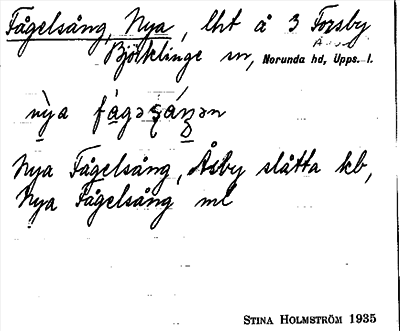 Fågelsång, Nya, lht å 3 Forsby
Björklinge sn, Norunda hd, Upps. l.
nỳa fàgəʂáŋən
Nya Fågelsång, Åsby slåtta kb,
Nya Fågelsång ml
STINA HOLMSTRÖM 1935